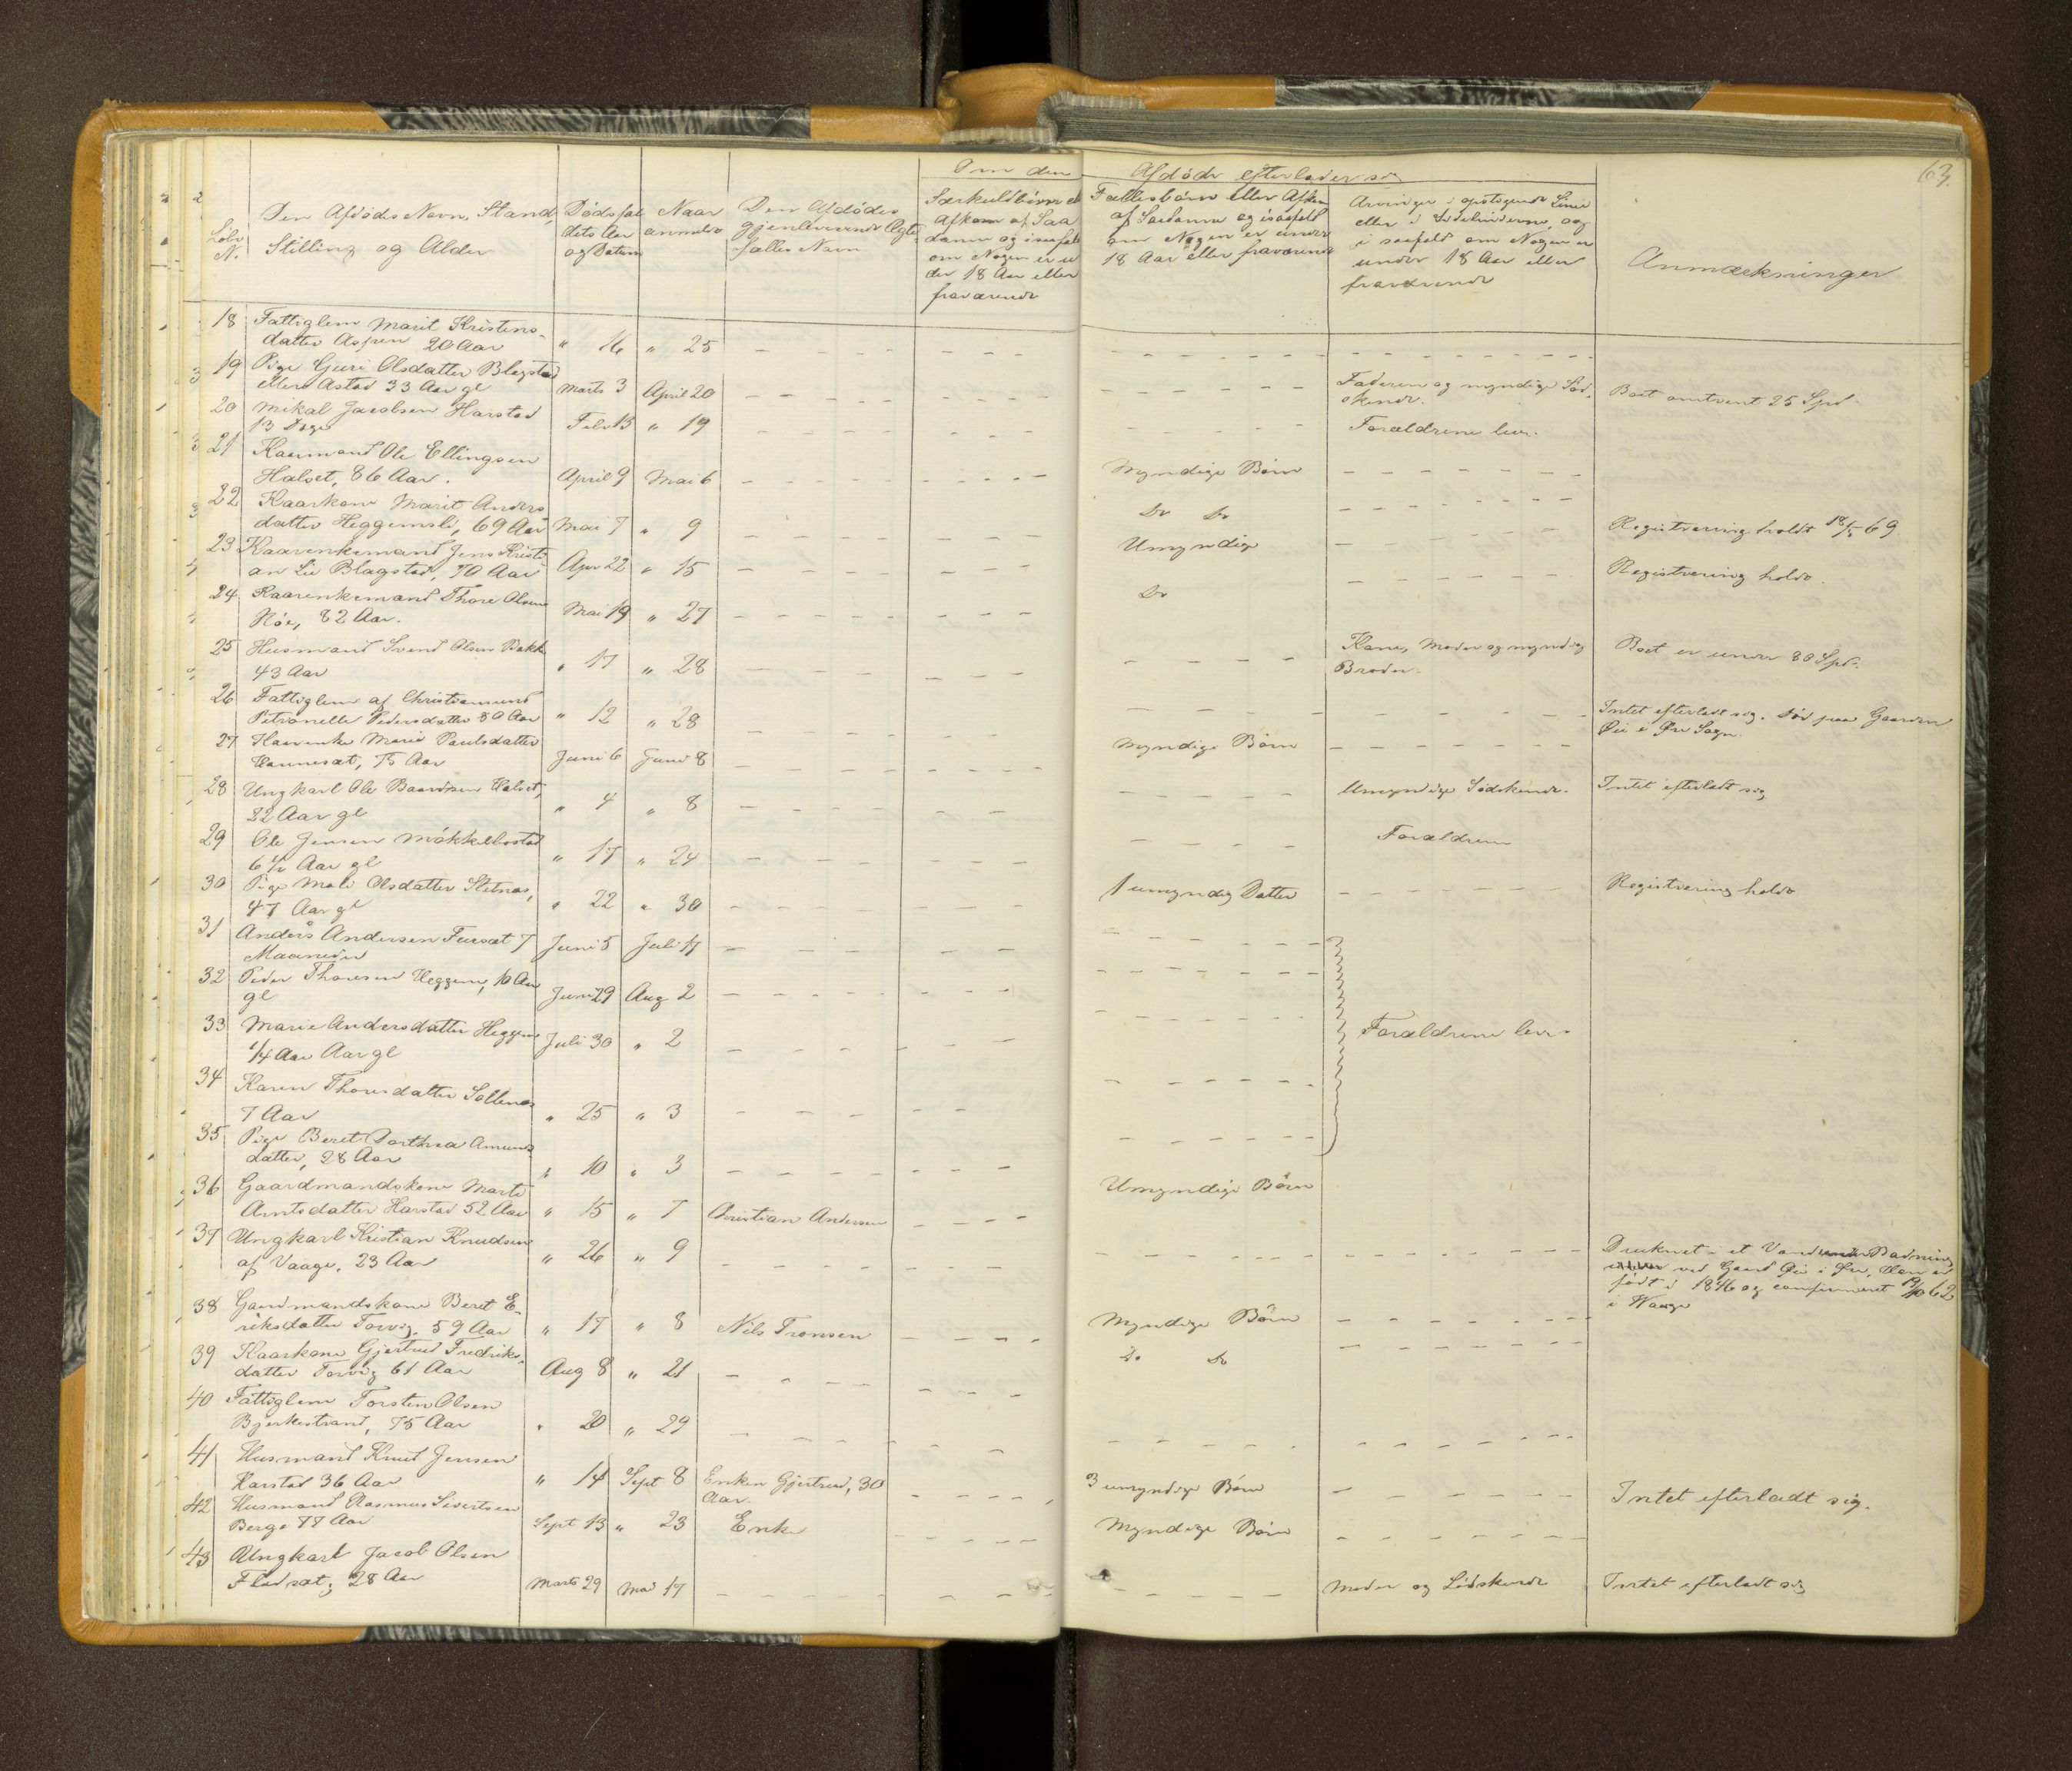 63.
Om den Afdøde efterlader sig
Løbe N.
Den Afdødes Navn, Stand, Stilling og Alder
Dødsfaldets Aar og Datum
Naar anmeldt
Den Afdødes gjenlevende Ægtefælles Navn
Særkuldbørn el Afkom af Saadanne og isaafald om Nogen er under 18 Aar eller fraværende
Fællesbørn eller Afkom af Saadanne og isaafald om Nogen er under 18 Aar eller fraværende
Arvinger i opstigende Linie eller i Sidelinierne, og i saafald om Nogen er under 18 Aar eller fraværende
Anmærkninger
18 Fattiglem Marit Kristens-
datter Aspen 20 Aar " 16 " 25
19 Pige Guri Olsdatter Blagstad
eller Astad 33 Aar gl Marts 3 April 20 Faderen og myndige Sød-
skende. Boet omtrent 25 Spd.
20 Mikal Jacobsen Harstad
13 Dage Febr 13 " 19 Forældrene lever.
21 Kaarmand Ole Ellingsen
Halset, 86 Aar. April 9 Mai 6 Myndige Børn
22 Kaarkone Marit Anders
datter Heggemsli, 69 Aar Mai 7 " 9 Do Do
23 Kaarenkemand Jens Kristi
an Lie Blagstad, 70 Aar Apr 22 " 15 Umyndige Registrering holdt 18/5 69
24 Kaarenkemand Thore Olsen
Höe, 82 Aar. Mai 19 " 27 Do Registrering holdt.
25 Husmand Svend Olsen Bakk
43 Aar " 17 " 28 Kone, Moder og myndig
Broder. Boet er under 80 Spd.
26 Fattiglem af Christiansund
Petronelle Pedersdatter 80 Aar " 12 " 28 Intet efterladt sig. Død paa Gaarden
Øie i Øre Sogn.
27 Kaarenke Marie Paulsdatter
Hannesæt, 75 Aar Juni 6 Juni 8 Myndige Børn
28 Ungkarl Ole Baardsen Halset,
22 Aar gl " 4 " 8 Umyndige Sødskende. Intet efterladt sig
29 Ole Jensen Møkkelbostad
6 1/2 Aar gl " 17 " 24 Forældrene
30 Pige Mali Olsdatter Sletnæs,
47 Aar gl " 22 " 30 1 umyndig Datter Registrering holdt
31 Anders Andersen Furset 7
Maaneder Juni 5 Juli 17
32 Peder Thoresen Heggem, 10 Aar
gl Juni 29 Aug 2
33 Marie Andersdatter Heggem
1/4 Aar Aar gl Juli 30 " 2 Forældrene lever.
34 Karen Thoresdatter Sollenæs
7 Aar " 25 " 3
35 Pige Beret Dorthea Amunds
datter, 28 Aar " 10 " 3
36 Gaardmandskone Marte
Arntsdatter Harstad 52 Aar " 15 " 7 Christian Andersen Umyndige Børn
37 Ungkarl Kristian Knudsen
af Vaage, 23 Aar " 26 " 9 Druknet i et Vand under Badning
ved Gaard Øie i Øre, Han er
født i 1846 og confirmeret 19/10 62
i Waage
38 Gaardmandskone Beret E-
riksdatter Torvig, 59 Aar " 17 " 8 Nils Tronsen Myndige Børn
39 Kaarkone Gjertrud Fredriks-
datter Torvig 61 Aar Aug 8 " 21 Do Do
40 Fattiglem Torsten Olsen
Bjerkestrand, 75 Aar " 20 " 29
41 Husmand Knud Jensen
Harstad 36 Aar " 14 Sept 8 Enken Gjertrud, 30
Aar. 3 umyndige Børn Intet efterladt sig.
42 Husmand Rasmus Sivertsen
Berge 77 Aar Sept 13 " 23 Enke Myndige Børn
43 Ungkarl Jacob Olsen
Fladsæt, 28 Aar Marts 29 Mai 17 Moder og Sødskende Intet efterladt sig